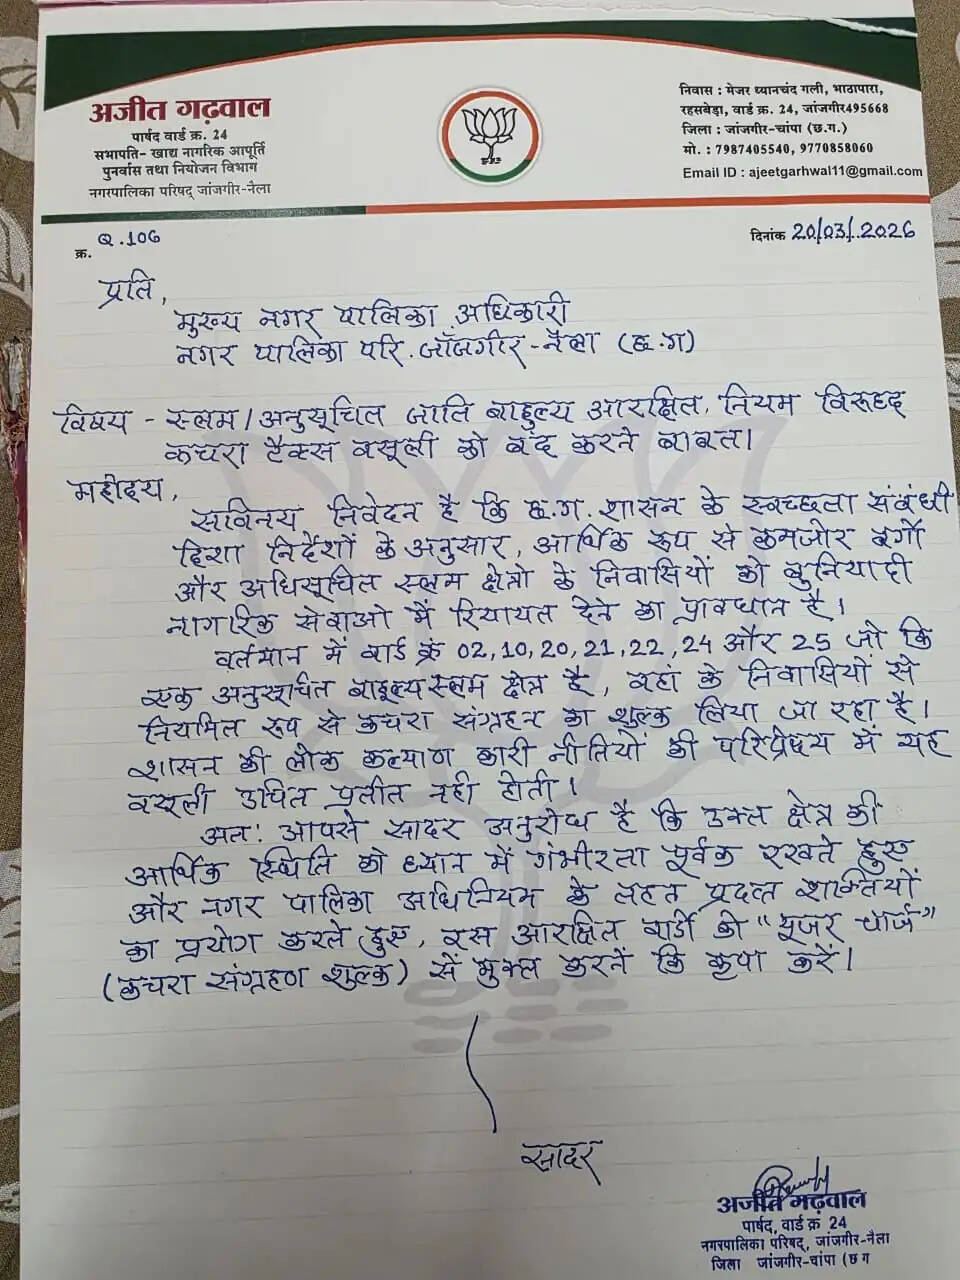 अजीत गढ़वाल
पार्षद वार्ड क्र. 24
सभापति- खाद्य नागरिक आपूर्ति
पुनर्वास तथा नियोजन विभाग
नगरपालिका परिषद् जांजगीर-नैला
निवास : मेजर ध्यानचंद गली, भाठापारा,
रहसबेड़ा, वार्ड क्र. 24, जांजगीर495668
जिला : जांजगीर-चांपा (छ.ग.)
मो. : 7987405540, 9770858060
Email ID : ajeetgarhwal11@gmail.com
क्र. Q.106
दिनांक 20/03/.2026
प्रति,
मुख्य नगर पालिका अधिकारी
नगर पालिका परि. जाँजगीर-नैला (छ.ग)
विषय - स्लम/अनुसूचित जाति बाहुल्य आरक्षित, नियम विरूद्द
कचरा टैक्स वसूली को बंद करने बाबत।
महोदय,
सविनय निवेदन है कि छ.ग. शासन के स्वच्छता संबंधी
दिशा निर्देशों के अनुसार, आर्थिक रूप से कमजोर वर्गों
और अधिसूचित स्लम क्षेत्रो के निवासियों को बुनियादी
नागरिक सेवाओ में रियायत देने का प्रावधान है।
वर्तमान में वार्ड क्रं 02,10,20,21,22,24 और 25 जो कि
एक अनुसूचित बाहुल्य स्लम क्षेत्र है, वहां के निवासियों से
नियमित रूप से कचरा संग्रहन का शुल्क लिया जा रहा है।
शासन की लोक कल्याण कारी नीतियों की परिप्रेक्ष्य में यह
वसूली उचित प्रतीत नही होती।
अतः आपसे सादर अनुरोध है कि उक्त क्षेत्र की
आर्थिक स्थिति को ध्यान में गंभीरता पूर्वक रखते हुए
और नगर पालिका अधिनियम के तहत प्रदत्त शक्तियों
का प्रयोग करते हुए, इस आरक्षित वार्डो को "यूजर चार्ज"
(कचरा संग्रहण शुल्क) सें मुक्त करनें कि कृपा करें।
सादर
अजीत गढ़वाल
पार्षद, वार्ड क्र 24
नगरपालिका परिषद्, जांजगीर-नैला
जिला जांजगीर-चांपा (छ ग